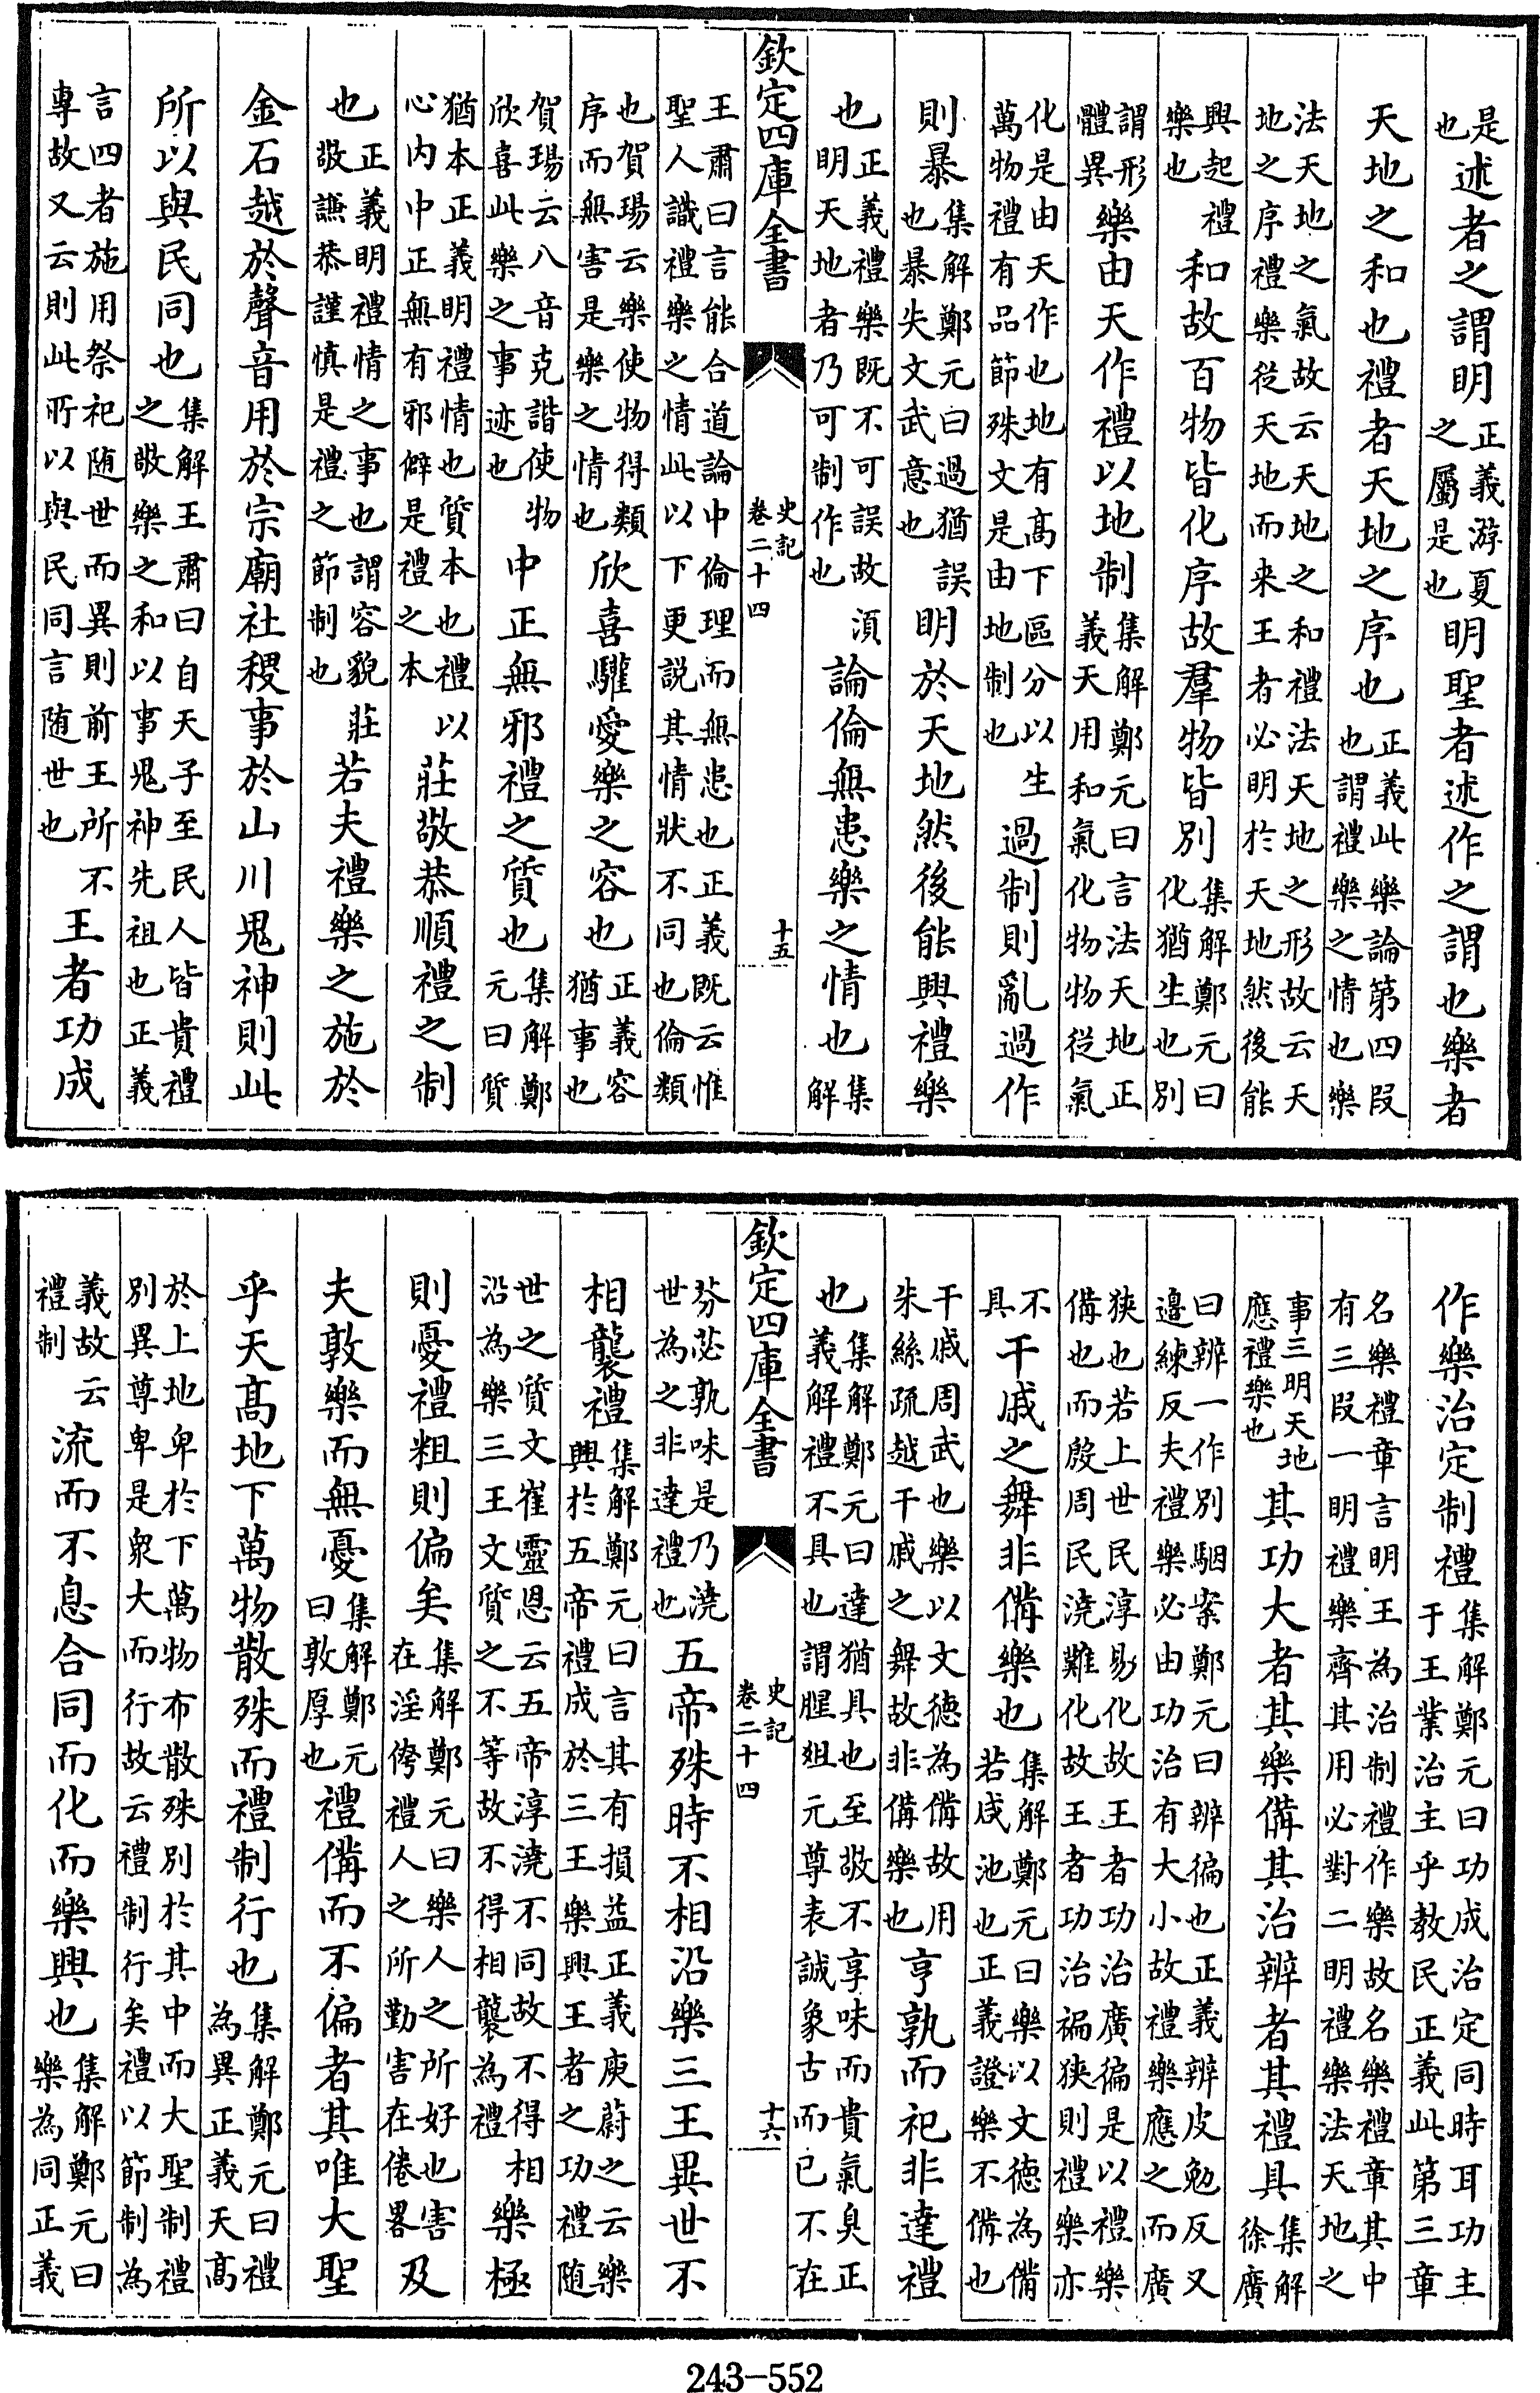 是也述者之謂明正義游夏之屬是也明聖者述作之謂也樂者
天地之和也禮者天地之序也正義此樂論第四段也謂禮樂之情也樂
法天地之氣故云天地之和禮法天地之形故云天地之序禮樂從天地而来王者必明於天地然後能
興起禮樂也和故百物皆化序故羣物皆別集解鄭元曰化猶生也別
謂形體異樂由天作禮以地制集解鄭元曰言法天地正義天用和氣化物物從氣
化是由天作也地有高下區分以生萬物禮有品節殊文是由地制也過制則亂過作
則暴集解鄭元曰過猶誤也暴失文武意也明於天地然後能興禮樂
也正義禮樂既不可誤故須明天地者乃可制作也論倫無患樂之情也集解
欽定四庫全書 史記卷二十四 十五
王肅曰言能合道論中倫理而無患也正義既云惟聖人識禮樂之情此以下更説其情狀不同也倫類
也賀瑒云樂使物得類序而無害是樂之情也欣喜驩愛樂之容也正義容猶事也
賀瑒云八音克諧使物欣喜此樂之事迹也中正無邪禮之質也集解鄭元曰質
猶本正義明禮情也質本也禮以心内中正無有邪僻是禮之本莊敬恭順禮之制
也正義明禮情之事也謂容貌莊敬謙恭謹慎是禮之節制也若夫禮樂之施於
金石越於聲音用於宗廟社稷事於山川鬼神則此
所以與民同也集解王肅曰自天子至民人皆貴禮之敬樂之和以事鬼神先祖也正義
言四者施用祭祀随世而異則前王所不專故又云則此所以與民同言随世也王者功成
作樂治定制禮集解鄭元曰功成治定同時耳功主于王業治主乎教民正義此第三章
名樂禮章言明王為治制禮作樂故名樂禮章其中有三段一明禮樂齊其用必對二明禮樂法天地之
事三明天地應禮樂也其功大者其樂備其治辨者其禮具集解徐廣
曰辨一作別駰案鄭元曰辨徧也正義辨皮勉反又邉練反夫禮樂必由功治有大小故禮樂應之而廣
狭也若上世民淳易化故王者功治廣徧是以禮樂備也而殷周民澆難化故王者功治褊狹則禮樂亦
不具干戚之舞非備樂也集解鄭元曰樂以文德為備若咸池也正義證樂不備也
干戚周武也樂以文德為備故用朱絲疏越干戚之舞故非備樂也亨孰而祀非達禮
也集解鄭元曰達猶具也至敬不享味而貴氣臭正義解禮不具也謂腥俎元尊表誠象古而已不在
欽定四庫全書 史記卷二十四 十六
芬苾孰味是乃澆世為之非達禮也五帝殊時不相沿樂三王異世不
相襲禮集解鄭元曰言其有損益正義庾蔚之云樂興於五帝禮成於三王樂興王者之功禮随
世之質文崔靈恩云五帝淳澆不同故不得相沿為樂三王文質之不等故不得相襲為禮樂極
則憂禮粗則偏矣集解鄭元曰樂人之所好也害在淫侉禮人之所勤害在倦畧及
夫敦樂而無憂集解鄭元曰敦厚也禮備而不偏者其唯大聖
乎天高地下萬物散殊而禮制行也集解鄭元曰禮為異正義天高
於上地卑於下萬物布散殊別於其中而大聖制禮別異尊卑是衆大而行故云禮制行矣禮以節制為
義故云禮制流而不息合同而化而樂興也集解鄭元曰樂為同正義
243-552